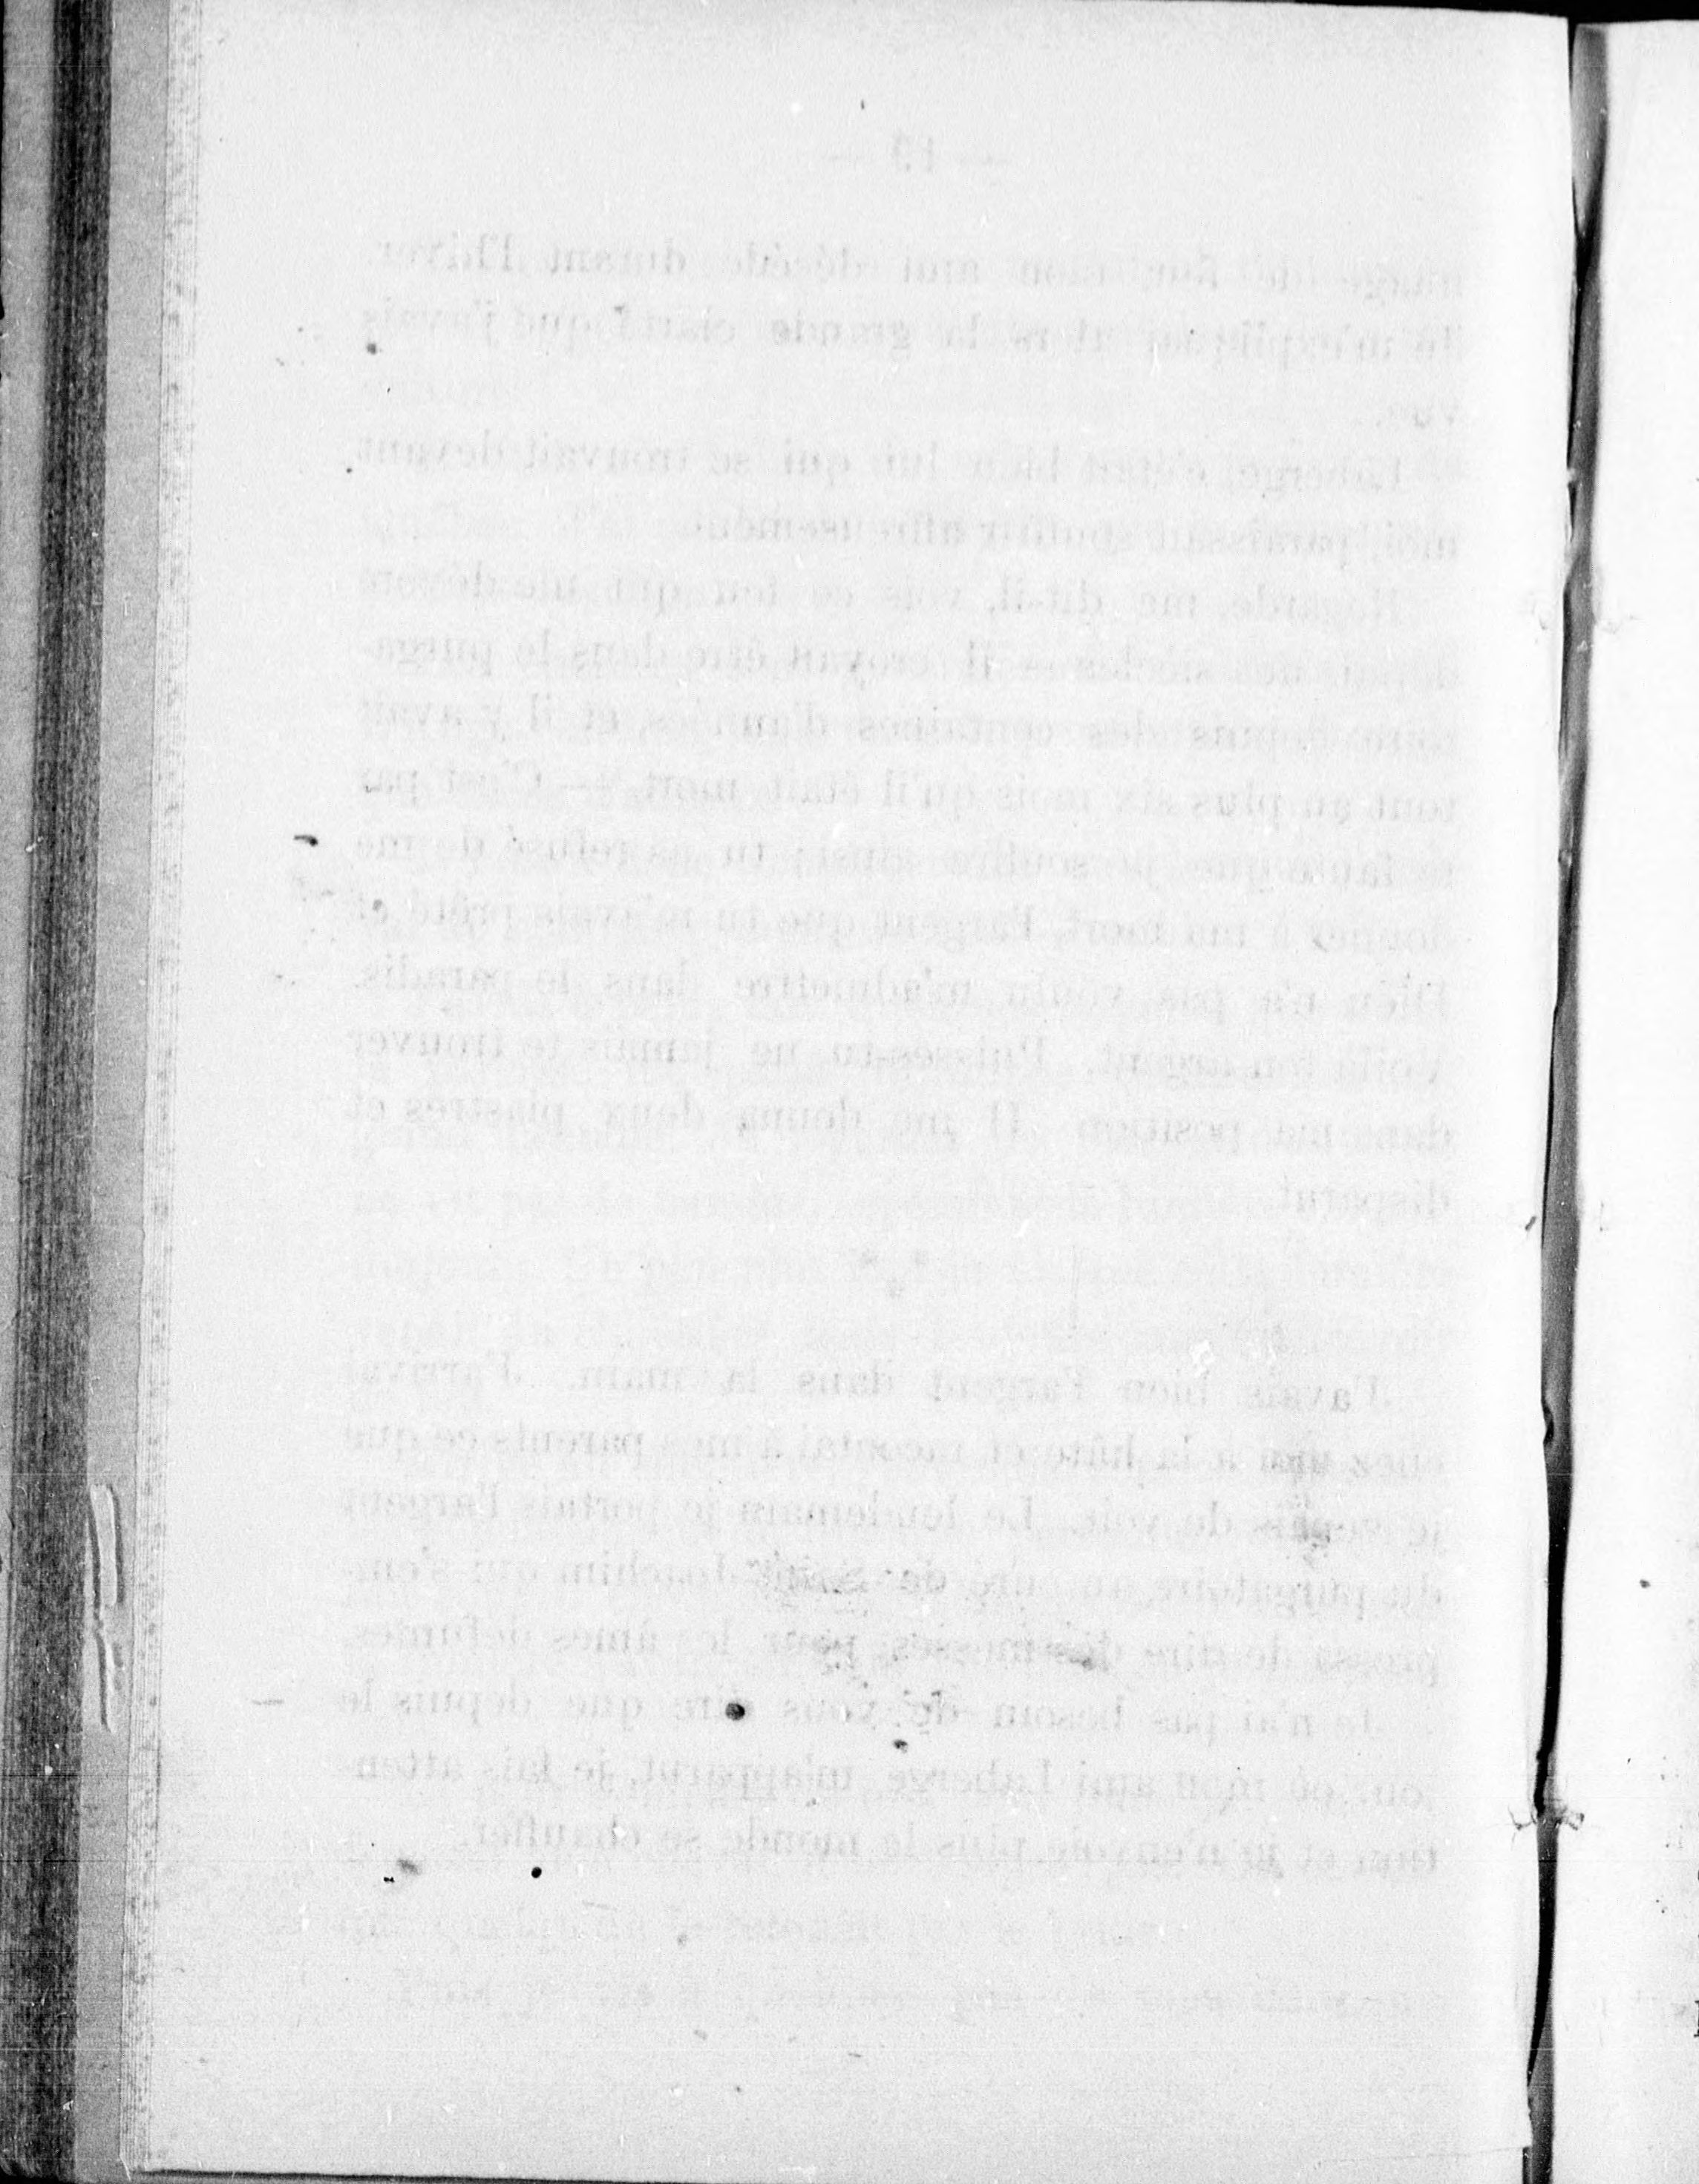 — 19 —
décédé durant l'hiver.
la grande clarté que j'avais
vue.
Laberge, c'était bien lui qui se trouvait devant
moi, paraissait souffrir affreusement.
Regarde, me dit-il, vois ce feu qui me dévore
depuis des siècles — il croyait être dans le purga-
toire depuis des centaines d'années, et il y avait
tout au plus six mois qu'il était mort. — C'est par
ta faute que je souffre ainsi; tu as refusé de me
donner à ma mort, l'argent que tu m'avais prêté et
Dieu n'a pas voulu m'admettre dans le paradis.
Voilà ton argent. Puisses-tu ne jamais te trouver
dans ma position. Il me donna deux piastres et
disparut
* * *
J'avais bien l'argent dans la main. J'arrivai
chez moi à la hâte et racontai à mes parents ce que
je venais de voir. Le lendemain je portais l'argent
du purgatoire au curé de Saint Joachim qui s'em-
pressa de dire des messes pour les âmes défuntes.
Je n'ai pas besoin de vous dire que depuis le
jour où mon ami Laberge m'apparut, je fais atten-
tion et je n'envoie plus le monde se chauffer.